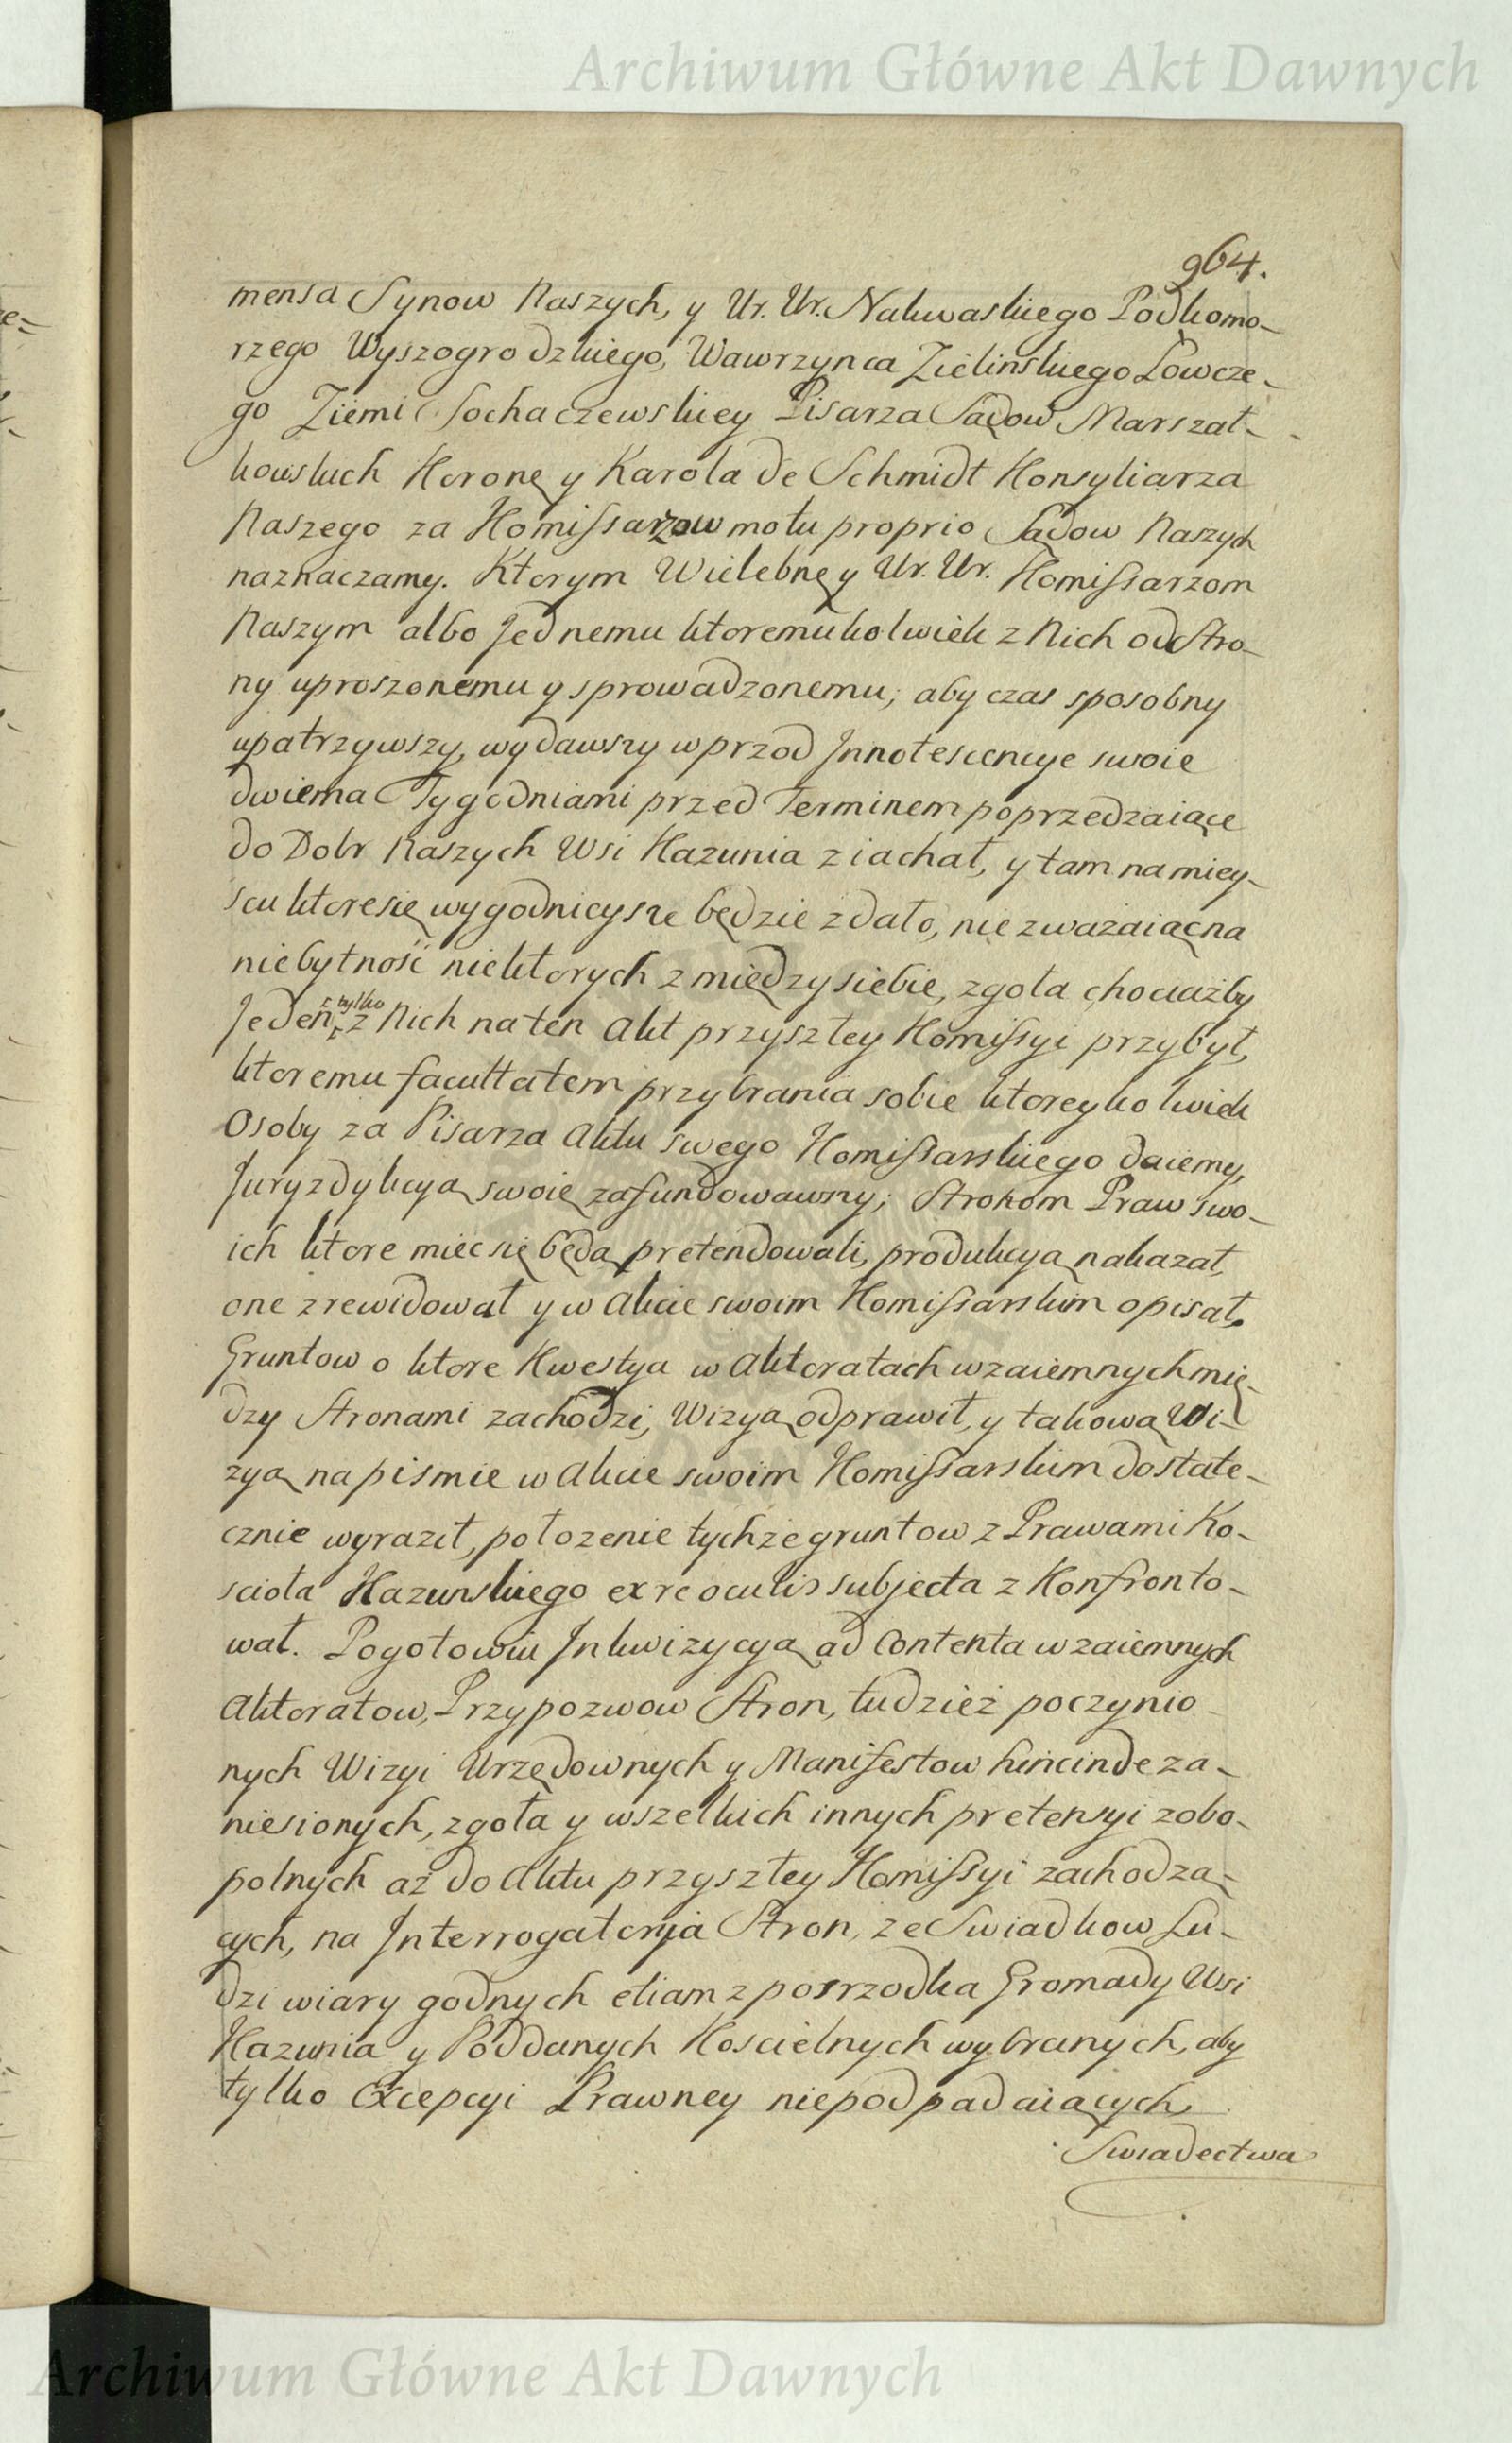 Archiwum Główne Akt Dawnych
964.
mensa Synow Naszych, y Ur. Ur. Nakwaskiego Podkomo-
rzego Wyszogrodzkiego, Wawrzynca Zielinskiego Łowcze-
go Ziemi Sochaczewskiey Pisarza Sądow Marszał-
kowskich Koronę y Karola de Schmidt Konsyliarza
Naszego za Komissarzow motu proprio Sądow Naszych
naznaczamy. Ktorym Wielebnę y Ur. Ur. Komissarzom
Naszym albo Jednemu ktoremukolwiek z Nich od Stro-
ny uproszonemu y sprowadzonemu; aby czas sposobny
upatrzywszy, wydawszy wprzod Innotescencye swoie
dwiema Tygodniami przed Terminem poprzedzaiące
do Dobr Naszych Wsi Kazunia ziachał, y tam na miey-
scu ktore się wygodnieysze będzie zdało, nie zważaiąc na
niebytność niektorych z między siebie, zgoła chociażby
Jeden tylko z Nich na ten Akt przyszłey Komissyi przybył,
ktoremu facultatem przybrania sobie ktoreykolwiek
Osoby za Pisarza Aktu swego Komissarskiego daiemy,
Juryzdykcyą swoię zafundowawszy; Stronom Praw swo-
ich ktore miec się będą pretendowali, produkcyą nakazał,
one zrewidował y w Akcie swoim Komissarskim opisał.
Gruntow o ktore Kwestya w Aktoratach wzaiemnych mię-
dzy Stronami zachodzi, Wizyą odprawił, y takową Wi-
zyą na pismie w Akcie swoim Komissarskim dostate-
cznie wyraził, położenie tychże gruntow z Prawami Ko-
scioła Kazunskiego ex re oculis subjecta z Konfronto-
wał. Pogotowiu Inkwizycyą ad Contenta wzaiemnych
Aktoratow, Przypozwow Stron, tudzież poczynio-
nych Wizyi Urzędownych y Manifestow hincinde za-
niesionych, zgoła y wszelkich innych pretensyi zobo-
polnych aż do Aktu przyszłey Komissyi zachodzą-
cych, na Interrogatorya Stron, ze Swiadkow Lu-
dzi wiary godnych etiam z posrzodka Gromady Wsi
Kazunia y Poddanych Koscielnych wybranych, aby
tylko Excepcyi Prawney niepodpadaiących
Swiadectwa
Archiwum Główne Akt Dawnych